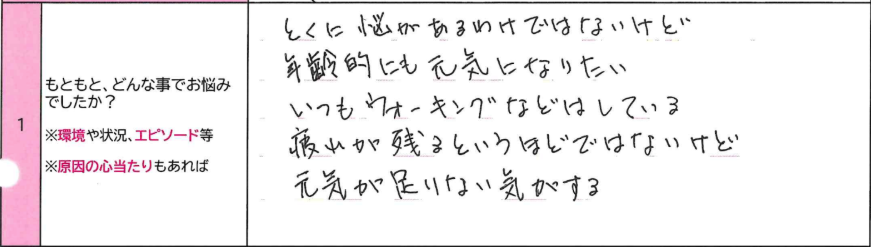 1
もともと、どんな事でお悩み
でしたか？
※環境や状況、エピソード等
※原因の心当たりもあれば
とくに悩があるわけではないけど
年齢的にも元気になりたい
いつもウォーキングなどはしている
疲れが残るというほどではないけど
元気が足りない気がする